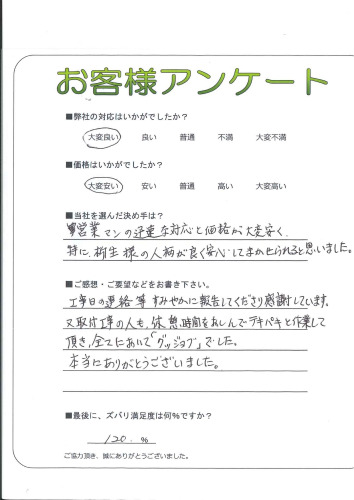 お客様アンケート
■弊社の対応はいかがでしたか？
大変良い 良い 普通 不満 大変不満
■価格はいかがでしたか？
大変安い 安い 普通 高い 大変高い
■当社を選んだ決め手は？
営業マンの迅速な対応と価格が大変安く、
特に、柳生様の人柄が良く安心してまかせられると思いました。
■ご感想・ご要望などをお書き下さい。
工事日の連絡等すみやかに報告してくださり感謝しています。
又取付工事の人も、休憩時間をおしんでテキパキと作業して
頂き、全てにおいて「グッジョブ」でした。
本当にありがとうございました。
■最後に、ズバリ満足度は何％ですか？
120.％
ご協力頂き、誠にありがとうございました。